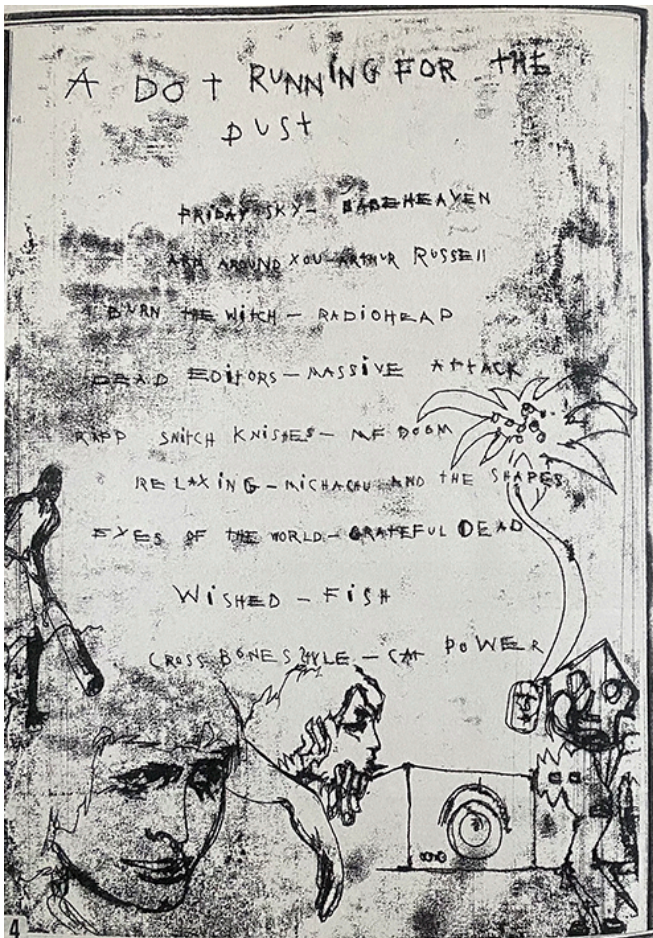 A DOT RUNNING FOR THE
DUST
FRIDAY SKY - BABEHEAVEN
ARM AROUND YOU - ARTHUR RUSSELL
BURN THE WITCH - RADIOHEAD
DEAD EDITORS - MASSIVE ATTACK
RAPP SNITCH KNISHES - MF DOOM
RELAXING - MICHACHU AND THE SHAPES
EYES OF THE WORLD - GRATEFUL DEAD
WISHED - FISH
CROSS BONES STYLE - CAT POWER
4